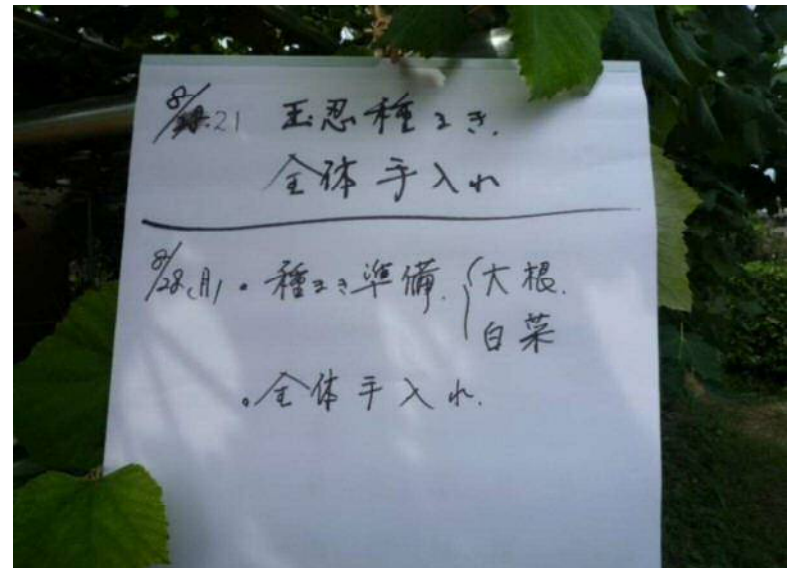 8/21 玉忍種まき.
全体手入れ
8/28(月)。種まき準備.{大根.
白菜
。全体手入れ.